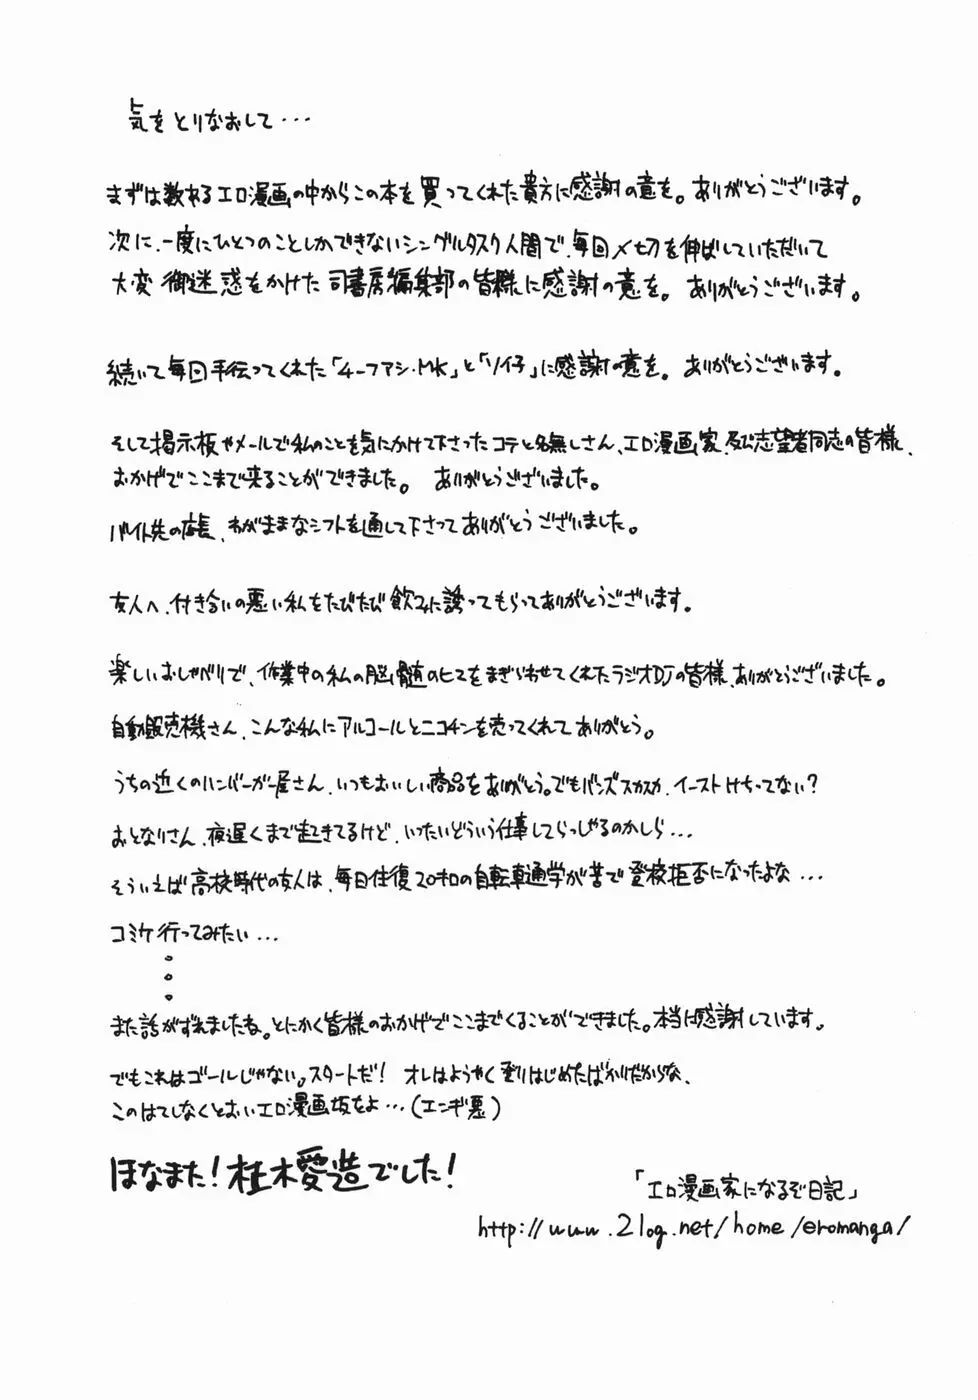 気をとりなおして・・・
まずは数あるエロ漫画の中からこの本を買ってくれた貴方に感謝の意を。ありがとうございます。
次に、一度にひとつのことしかできないシングルタスク人間で、毎回〆切を伸ばしていただいて
大変御迷惑をかけた司書房編集部の皆様に感謝の意を。ありがとうございます。
続いて毎回手伝ってくれた「4-ファシ・MK」と「ソノ子」に感謝の意を。ありがとうございます。
そして掲示板やメールで私のことを気にかけて下さったコテと名無しさん、エロ漫画家、及び志望者同志の皆様、
おかげでここまで来ることができました。ありがとうございました。
バイト先の店長、わがままなシフトを通して下さってありがとうございました。
友人へ、付き合いの悪い私をたびたび飲みに誘ってもらってありがとうございます。
楽しいおしゃべりで、作業中の私の脳髄のヒマをまぎらわせてくれたラジオDJの皆様、ありがとうございました。
自動販売機さん、こんな私にアルコールとニコチンを売ってくれてありがとう。
うちの近くのハンバーガー屋さん、いつもおいしい商品をありがとう。でもバンズスカスカ、イーストけちってない?
おとなりさん、夜遅くまで起きてるけど、いったいどういう仕事してらっしゃるのかしら・・・
そういえば高校時代の友人は、毎日往復20キロの自転車通学が苦で登校拒否になったよな・・・
コミケ行ってみたい・・・
。
。
。
また話がずれましたね。とにかく皆様のおかげでここまでくることができました。本当に感謝しています。
でもこれはゴールじゃない。スタートだ! オレはようやく登りはじめたばかりだからな、
このはてしなくとおいエロ漫画坂をよ・・・(エンギ悪)
ほなまた!柱木愛造でした!
「エロ漫画家になるぞ日記」
http://www.2log.net/home/eromanga/